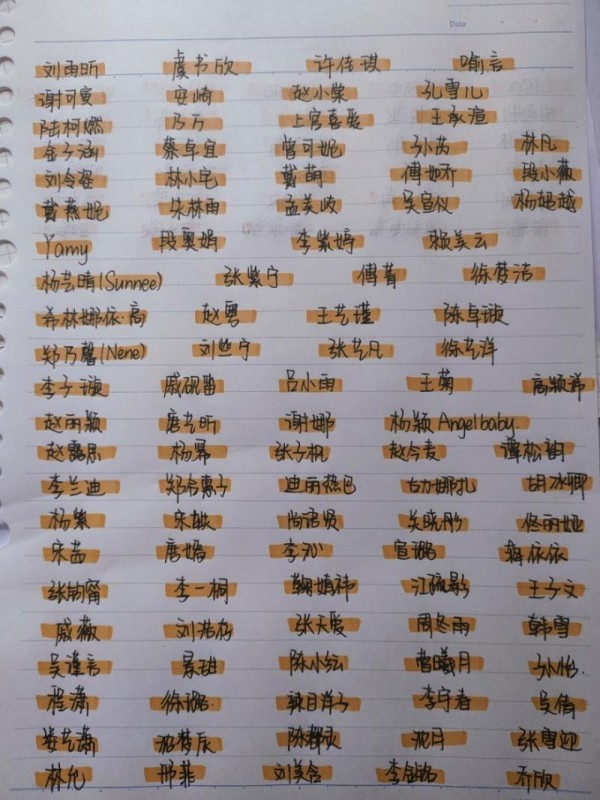 Date
刘雨昕 虞书欣 许佳琪 喻言
谢可寅 安崎 赵小棠 孔雪儿
陆柯燃 乃万 上官喜爱 王承渲
金子涵 蔡卓宜 曾可妮 孙芮 林凡
刘令姿 林小宅 戴萌 傅如乔 段小薇
戴燕妮 朱林雨 孟美岐 吴宣仪 杨超越
Yamy 段奥娟 李紫婷 赖美云
杨芸晴(Sunnee) 张紫宁 傅菁 徐梦洁
希林娜依·高 赵粤 王艺瑾 陈卓璇
郑乃馨(Nene) 刘些宁 张艺凡 徐艺洋
李子璇 戚砚笛 吕小雨 王菊 高颖浠
赵丽颖 唐艺昕 谢娜 杨颖 Angelbaby.
赵露思 杨幂 张子枫 赵今麦 谭松韵
李兰迪 郑合惠子 迪丽热巴 古力娜扎 胡冰卿
杨紫 宋轶 尚语贤 关晓彤 佟丽娅
宋茜 唐嫣 李沁 宣璐 蒋依依
张钧甯 李一桐 鞠婧祎 江疏影 王子文
戚薇 刘浩存 张天爱 周冬雨 韩雪
吴谨言 景甜 陈小纭 曾曦月 孙怡.
程潇 徐璐. 辣目洋子 李宇春 吴倩
娄艺潇 沈梦辰 陈都灵 沈月 张雪迎
林允 邢菲 刘美含 乔欣